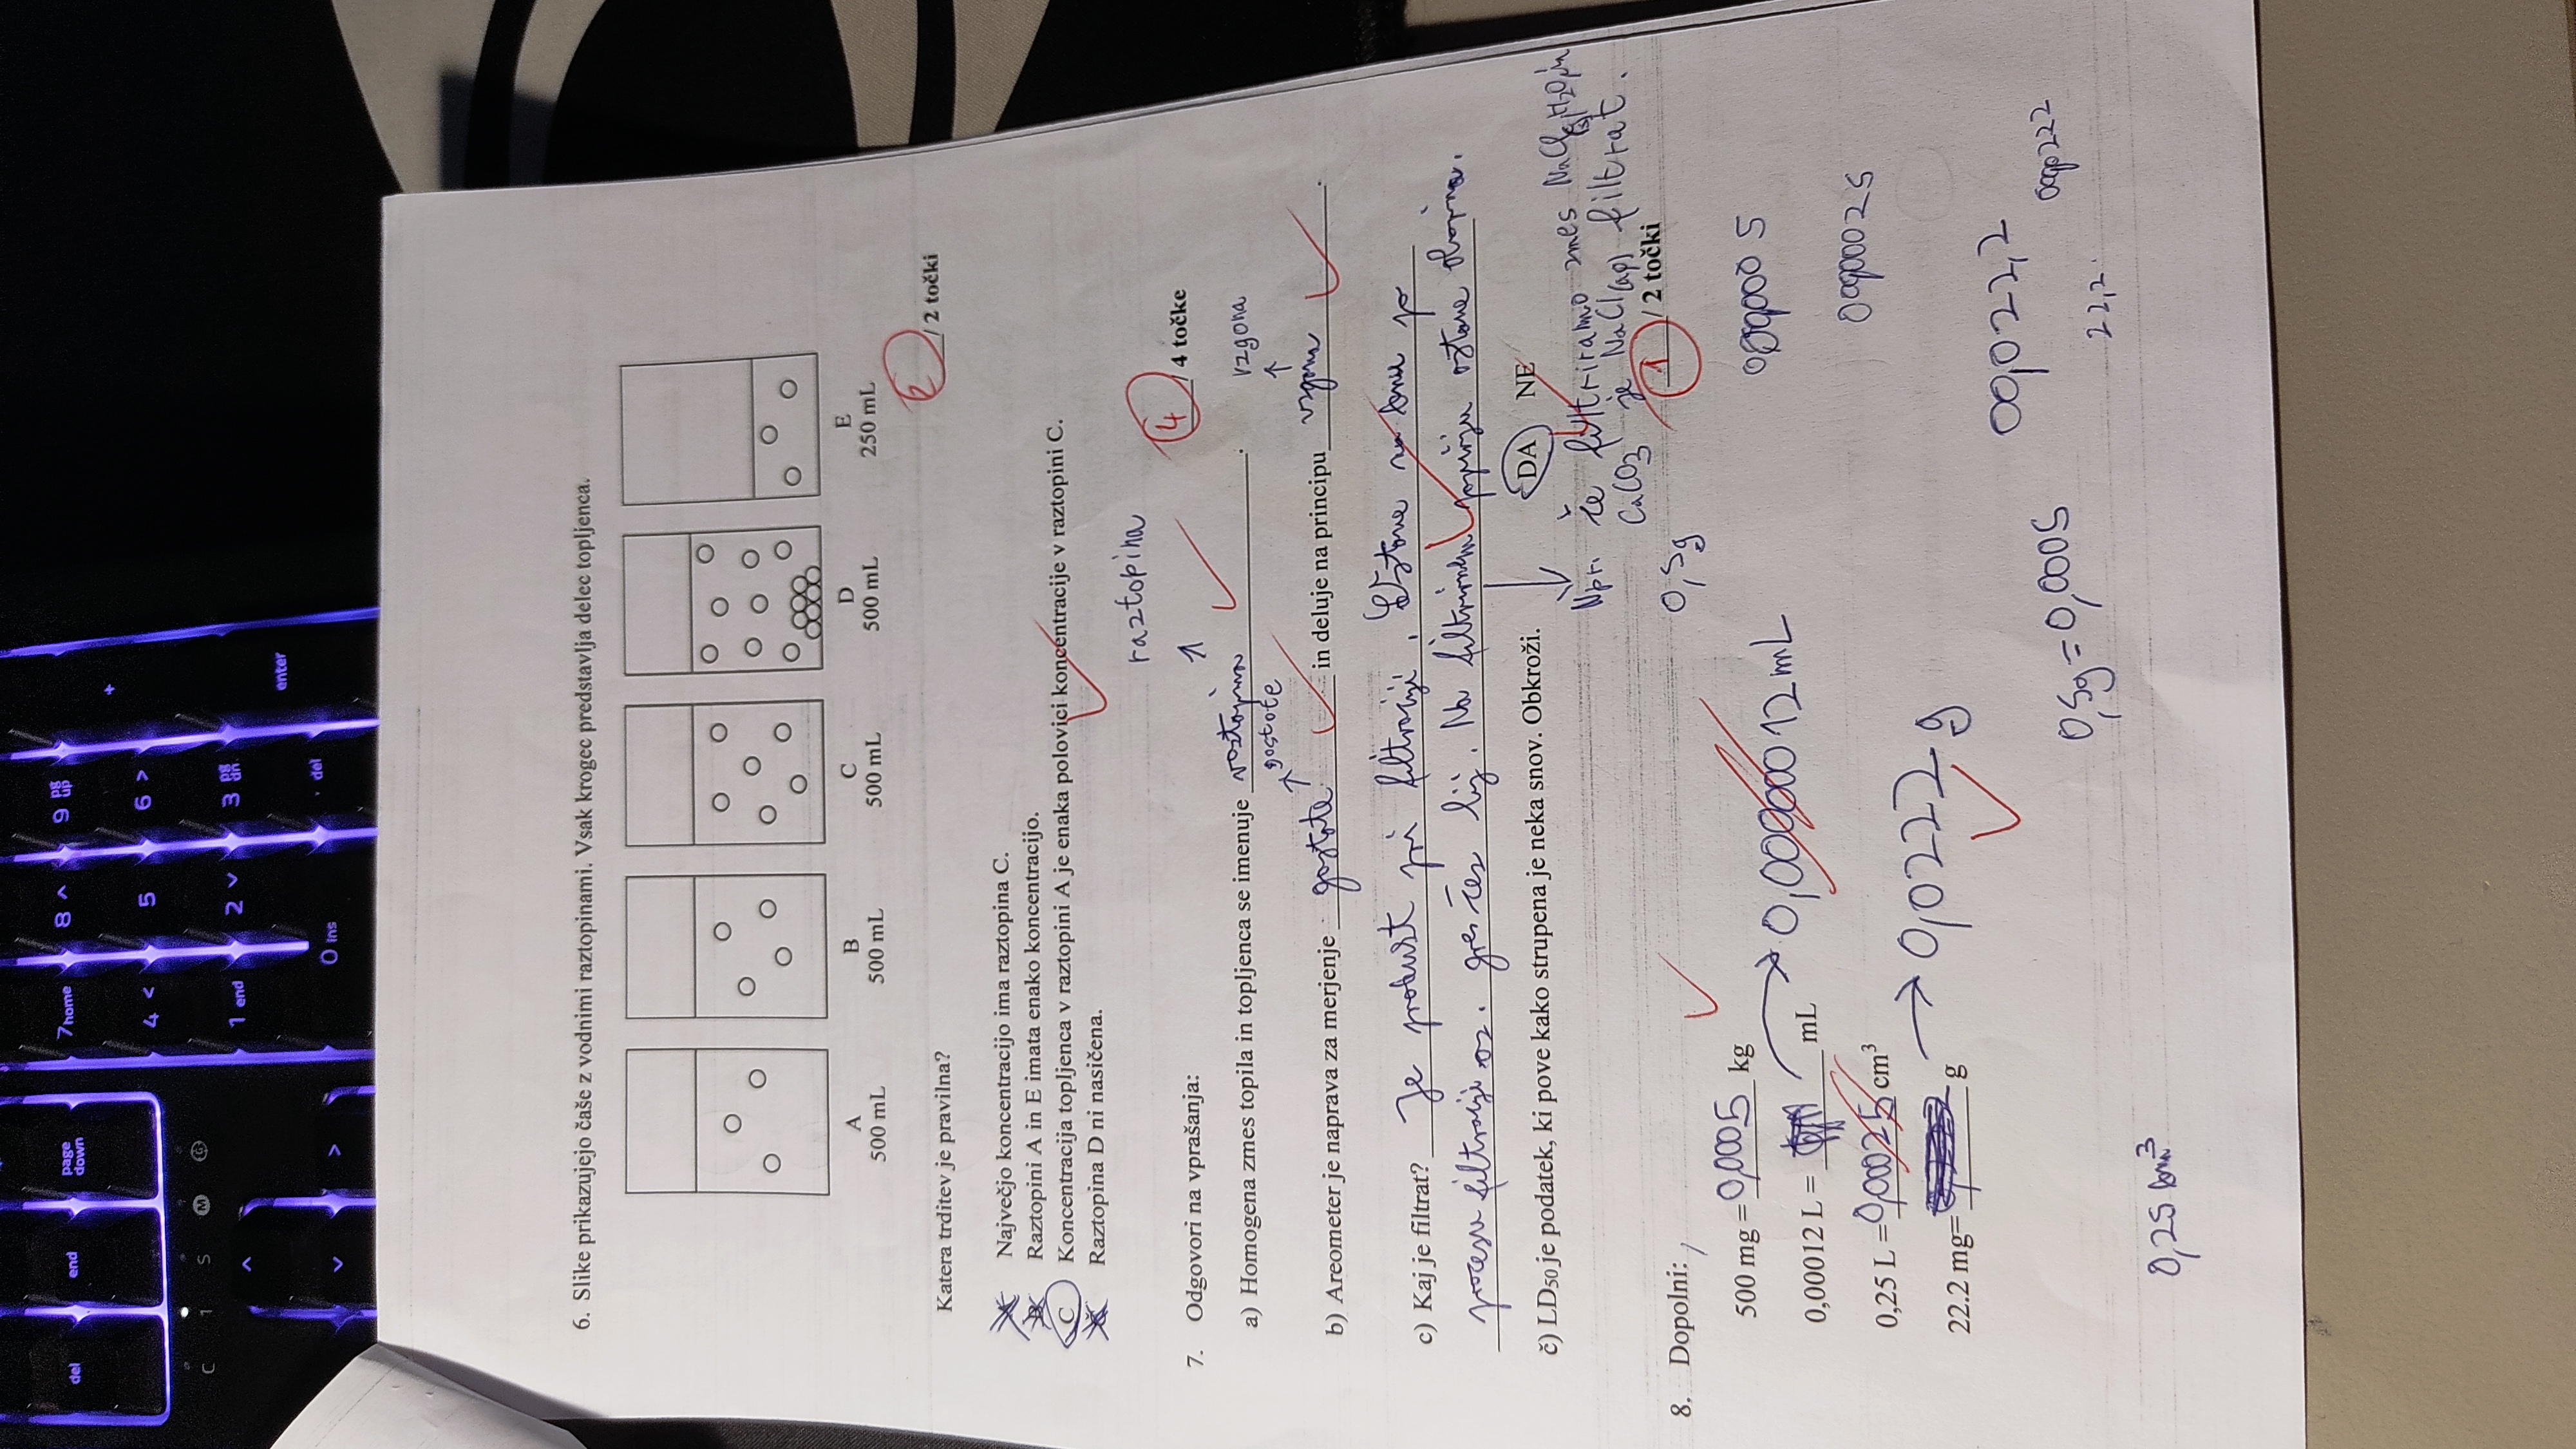 del end page down 7 home 8 ^ 9 pg up +
4 < 5 6 >
C 1 S M G
^ 1 end 2 v 3 pg dn enter
v > 0 ins . del
6. Slike prikazujejo čaše z vodnimi raztopinami. Vsak krogec predstavlja delec topljenca.
A B C D E
500 mL 500 mL 500 mL 500 mL 250 mL
2 / 2 točki
Katera trditev je pravilna?
A Največjo koncentracijo ima raztopina C.
B Raztopini A in E imata enako koncentracijo.
C Koncentracija topljenca v raztopini A je enaka polovici koncentracije v raztopini C.
Č Raztopina D ni nasičena.
raztopina
4 / 4 točke
7. Odgovori na vprašanja:
a) Homogena zmes topila in topljenca se imenuje raztopina.
gostote vzgona
b) Areometer je naprava za merjenje gostote in deluje na principu vzgona.
c) Kaj je filtrat? Je produkt pri filtraciji. Ostane na dnu po
procesu filtracije oz. gre čez lij. Na filtrirnem papirju ostane oborina.
č) LD50 je podatek, ki pove kako strupena je neka snov. Obkroži. DA NE
Npr. če filtriramo zmes NaCl(s), H2O, in
CaCO3 je NaCl(aq) filtrat.
1 / 2 točki
8. Dopolni:
0,5g
500 mg = 0,0005 kg
0,00012 L = mL → 0,00000012 mL
0,25 L = 0,00025 cm³
22.2 mg= g → 0,0222 g
00,022,2
0,5g = 0,0005
22,2
0,25 dm³